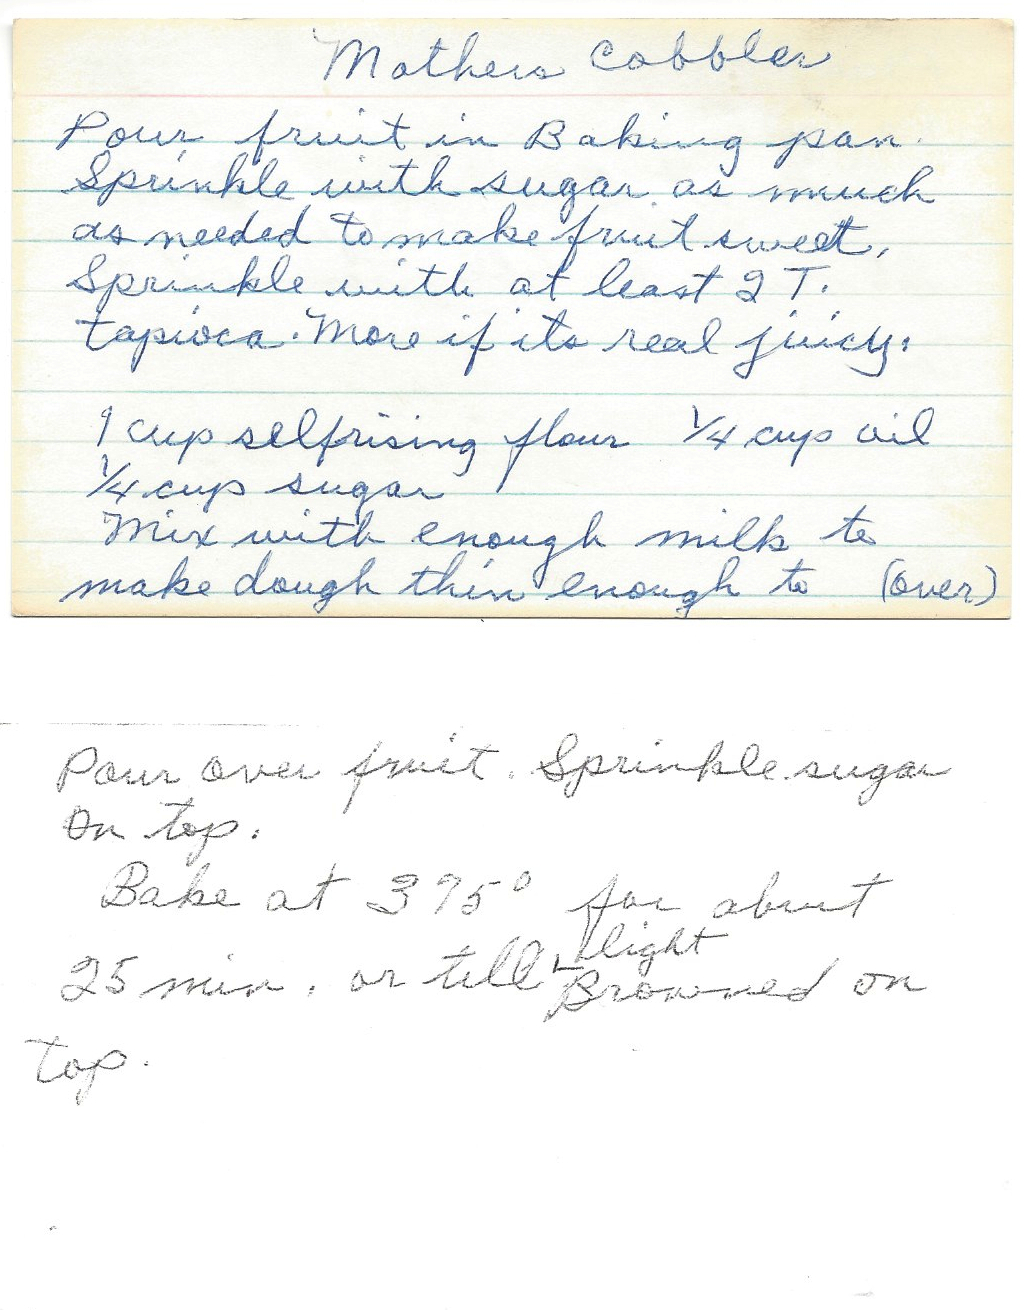 Mothers Cobbler
Pour fruit in Baking pan.
Sprinkle with sugar as much
as needed to make fruit sweet.
Sprinkle with at least 2 T.
tapioca. More if its real juicy.
1 cup selfrising flour 1/4 cup oil
1/4 cup sugar
Mix with enough milk to
make dough thin enough to (over)
Pour over fruit. Sprinkle sugar
on top.
Bake at 375° for about
light
25 min. or till Browned on
top.